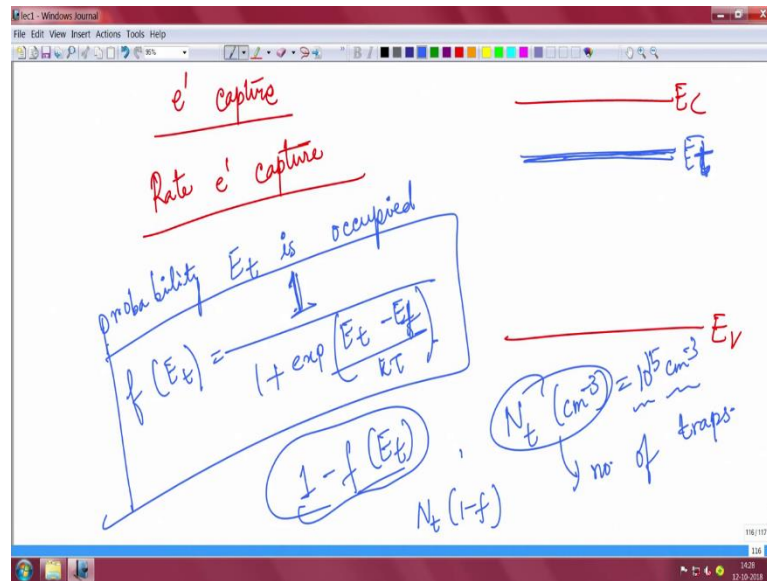 lec1 - Windows Journal
File Edit View Insert Actions Tools Help
95%
e' capture
Rate e' capture
Ec
Et
Ev
probability Et is occupied
f(Et) = 1 / (1 + exp((Et - Ef)/kT))
1 - f(Et) ,
Nt (cm-3) = 10^15 cm-3
no. of traps.
Nt (1-f)
116/117
116
14:28
12-10-2018